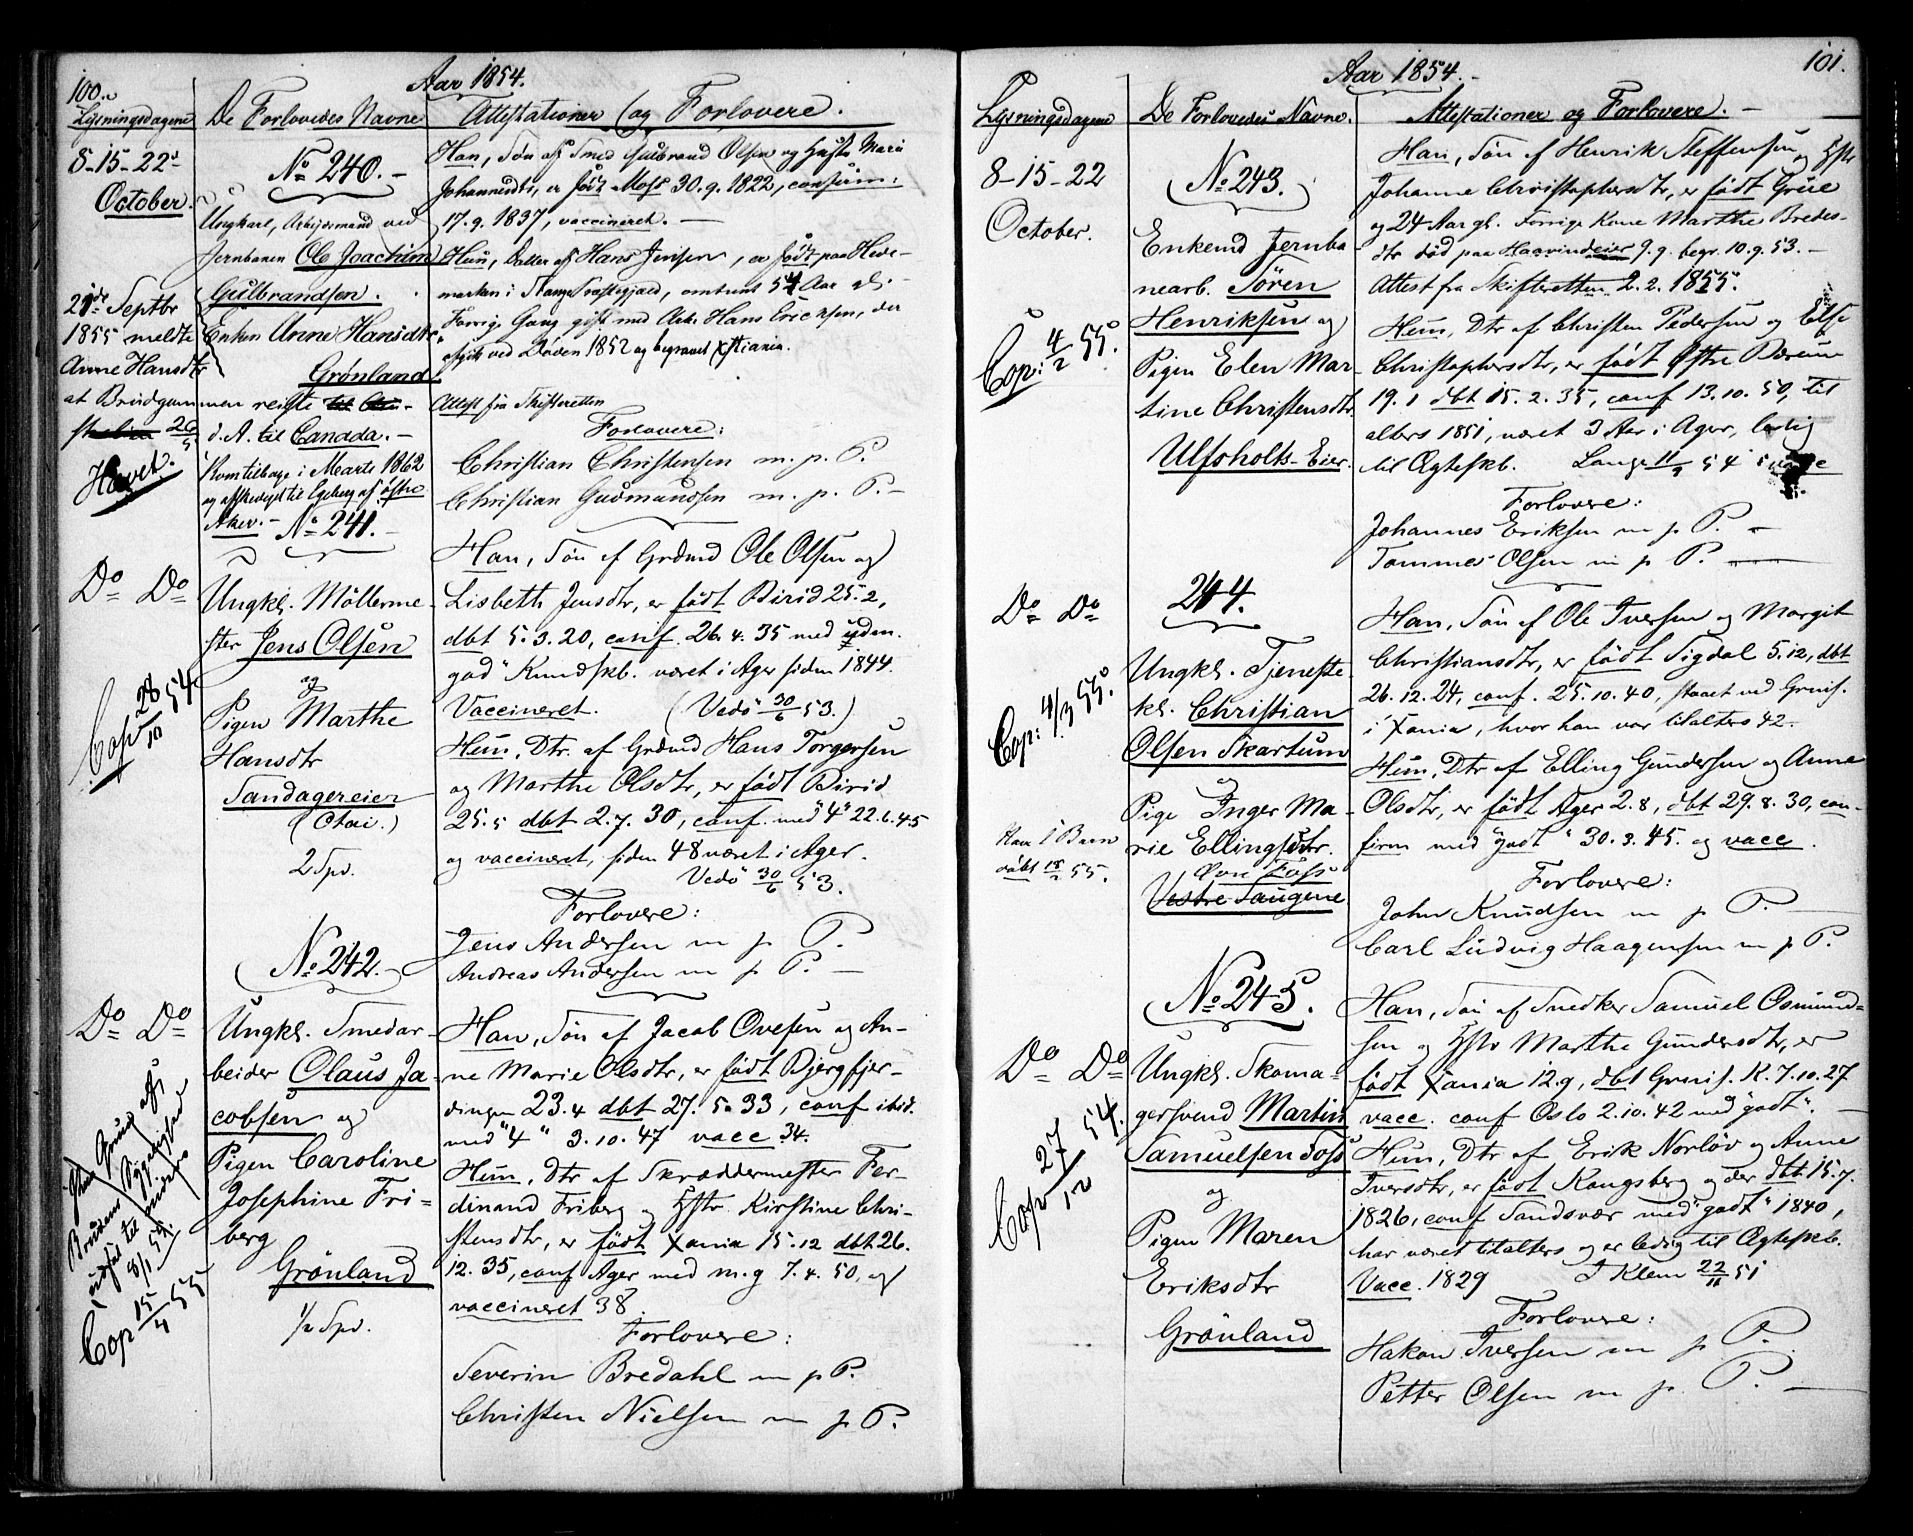 100.
Aar 1854.
Lysningsdagene
De Forlovedes Navne
Attestationer og Forlovere.
8-15-22
October.
No 240.
Ungkarl, Arbejdsmand ved
Jernbanen Ole Joachim
Gulbrandsen.
Enken Anne Hansdtr
Grønland
21de Septbr
1855 meldte
Anne Hansdtr
at Brudgommen reiste
d. A. til Canada.
Hævet.
Kom tilbage i Marts 1862
Aker.
Han, Søn af Smed Gulbrand Olsen og Hustr Mari
Johannesdtr, er født Moss 30.9.1822, confirm:
17.9.1837, vaccineret.
Hun, Datter af Hans Jensen, er født paa Hede-
marken i Stange Præstegjæld, omtrent 54 Aar
Forrige Gang gift med Arb. Hans Ericksen, der
afgik ved Døden 1852 og begravet Xstiania.
Attest fra Skifteretten
Forlovere:
Christian Christensen m. p. P.
Christian Gudmundsen m. p. P.
No 241.
Do Do
Cop 28/10 54
Ungkl. Møllerme-
ster Jens Olsen
og
Pigen Marthe
Hansdtr
Sandagereier
2 Spd.
Han, Søn af Grdmd Ole Olsen og
Lisbeth Jensdtr, er født Birid 25.2,
dbt 5.3.20, conf. 26.4.35 med uden.
god Kundskb. været i Ager siden 1844.
Vaccineret. (Vedö 30/6 53.)
Hun, Dtr. af Grdmd Hans Torgersen
og Marthe Olsdtr, er født Birid
25.5 dbt 2.7.30, conf. med "4" 22.6.45
og vaccineret, siden 48 været i Ager.
Vedö 30/6 53.
Forlovere:
Jens Andersen m p P.
Andreas Andersen m p P.
No 242.
Do Do
Bruden
udsat til
8/1 54.
Cop 15/4 55
Ungkl. Smedar-
beider Olaus Ja-
cobsen og
Pigen Caroline
Josephine Fri-
berg
Grønland
1/2 Spd.
Han, Søn af Jacob Ovesen og An-
ne Marie Olsdtr, er født Bjergfjer-
dingen 23.4 dbt 27.5.33, conf ibid.
med "4" 3.10.47 vacc 34.
Hun, Dtr af Skræddermester Fer-
dinand Friberg og Hstr. Kirstine Chri-
stensdtr, er født Xania 15.12 dbt 26.
12.35, conf Ager med m.g 7.4.50, og
vaccineret 38.
Forlovere:
Severin Bredahl m p P.
Christen Nielsen m p P.
Aar 1854.
101.
Lysningsdagene
De Forlovedes Navne.
Attestationer og Forlovere.
8-15-22
October.
Cop: 4/2 55.
No 243.
Enkemd Jernba
nearb. Søren
Henriksen og
Pigen Elen Mar-
tine Christensdtr.
Ulfsholts-Eier.
Han, Søn af Henrik Steffensen og Hstr
Johanne Christophersdtr, er født Grue
og 24 Aar gl. Forrige Kone Marthe Bredes-
dtr død paa Haavindeier 9.9. begr. 10.9.53.
Attest fra Skifteretten 2.2.1855.
Hun, Dtr af Christen Pedersen og Else
Christophersdtr, er født Østre Bærum
19.1 dbt 15.2.35, conf 13.10.50, til
alters 1851, været 3 Aar i Ager, ledig
til Ægteskb. Lange 11/9 54
Forlovere:
Johannes Eriksen m p P.
Tommes Olsen m p P.
244.
Do Do
Cop: 4/3 55.
Have 1 Barn
døbt 18/2 55.
Ungkl. Tjeneste-
kl. Christian
Olsen Skartum
og
Pige Inger Ma-
rie Ellingsdtr.
Øvre Foss
Vestre Saugene
Han, Søn af Ole Iversen og Margit
Christiansdtr, er født Sigdal 5.12, dbt
26.12.24, conf. 25.10.40, staaet ved Grnis.
i Xania, hvor han var tilalters 42.
Hun, Dtr af Elling Gundersen og Anne
Olsdtr, er født Ager 2.8, dbt 29.8.30, con-
firm med "godt" 30.3.45. og vacc.
Forlovere:
John Knudsen m p P.
Carl Ludvig Haagensen m p P.
No 245.
Do Do
Cop 27/12 54.
Ungkl. Skoma-
gersvend Martin
Samuelsen Foss
og
Pigen Maren
Eriksdtr
Grønland
Han, Søn af Snedker Samuel Osmund-
sen og Hstr Marthe Gundersdtr, er
født Xania 12.9, dbt Grnis. K. 7.10.27
vacc. conf Oslo 2.10.42 med "godt".
Hun, Dtr af Erik Norløv og Anne
Iversdtr, er født Kongsberg og der dbt 15.7.
1826, conf Sandsvær med "godt" 1840,
har været tilalters og er ledig til Ægteskb.
Vacc. 1829 J Klem 22/11 51
Forlovere:
Hakon Iversen m p P.
Petter Olsen m p. P.